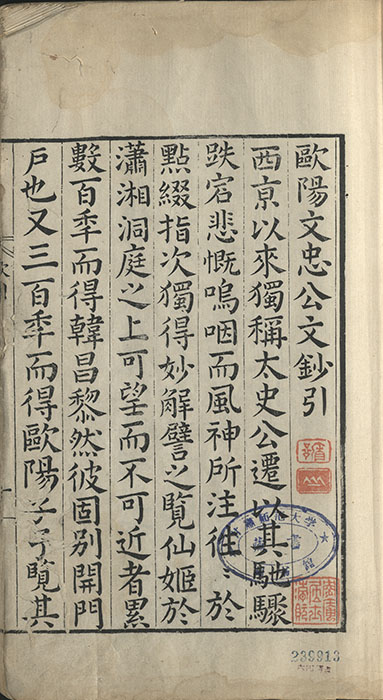 歐陽文忠公文鈔引
西京以來獨稱太史公遷以其馳驟
跌宕悲慨嗚咽而風神所注徃〻於
點綴指次獨得妙解譬之覽仙姬於
瀟湘洞庭之上可望而不可近者累
數百秊而得韓昌黎然彼固別開門
戶也又三百秊而得歐陽子予覽其
239913